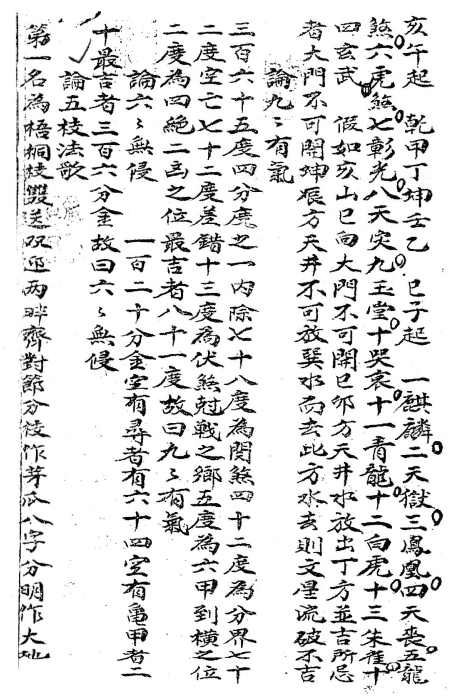 亥午起　乾甲丁坤壬乙　巳子起　一麒麟二天獄三鳳凰四天喪五龍
煞六虎煞七彰光八天災九玉堂十哭哀十一青龍十二白虎十三朱雀十
四玄武　假如亥山巳向大門不可開巳卯方天井水放出丁方並吉所忌
者大門不可開坤艮方天井不可放巽水而去此方水去則文星流破不吉
論九〻有氣
三百六十五度四分度之一內除七十八度為関煞四十二度為分界七十
二度空亡七十二度差錯十三度為伏煞尅戰之鄉五度為六甲到橫之位
二度為四絕二凶之位最吉者八十一度故曰九〻有氣
論六〻無侵　一百二十分金空有尋者有六十四空有亀甲者二
十最吉者三百六分金故曰六〻無侵
論五枝法歌
第一名為梧桐枝雙送双迎两畔齊對節分枝作芽瓜八字分明作大地